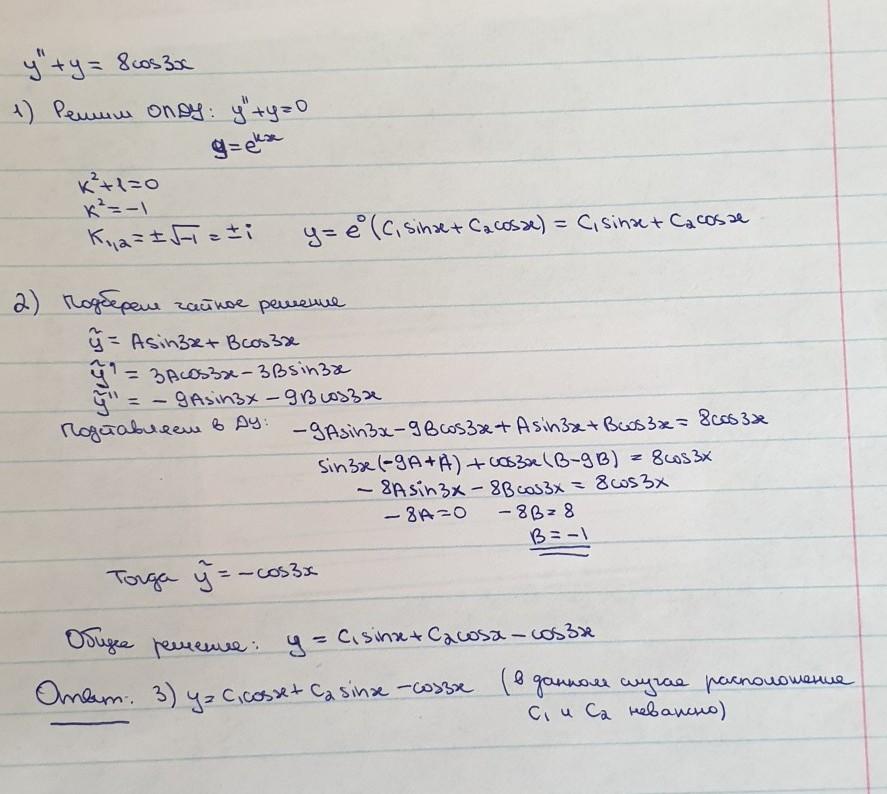 y'' + y = 8cos3x
1) Решим ОЛДУ: y'' + y = 0
y = e^{kx}
k² + 1 = 0
k² = -1
k₁,₂ = ±√-1 = ±i    y = e⁰(C₁sinx + C₂cosx) = C₁sinx + C₂cosx
2) Подберем частное решение
ỹ = Asin3x + Bcos3x
ỹ' = 3Acos3x - 3Bsin3x
ỹ'' = - 9Asin3x - 9Bcos3x
Подставляем в ДУ: -9Asin3x - 9Bcos3x + Asin3x + Bcos3x = 8cos3x
sin3x(-9A+A) + cos3x(B-9B) = 8cos3x
- 8Asin3x - 8Bcos3x = 8cos3x
- 8A = 0    - 8B = 8
B = -1
Тогда ỹ = -cos3x
Общее решение: y = C₁sinx + C₂cosx - cos3x
Ответ: 3) y = C₁cosx + C₂sinx - cos3x (в данном случае расположение
C₁ и C₂ неважно)